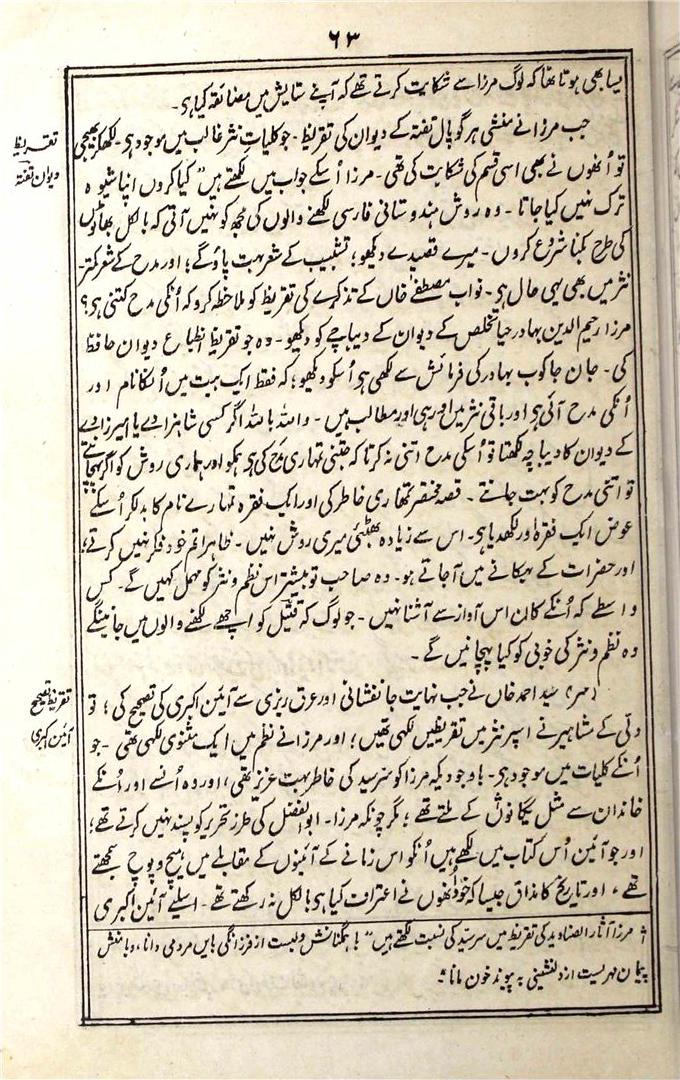 ٦٣
یسا بھی ہوتا تھا کہ لوگ مرزا سے شکایت کرتے تھے کہ آپنے ستایش میں مضائقہ کیا ہی۔
جب مرزا نے منشی ہرگوپال تفتہ کے دیوان کی تقریظ۔ جو کلیات نثر غالب میں موجود ہی۔ لکھکر بھیجی
تقریظ
دیوان تفتہ
تو اُنھوں نے بھی اسی قسم کی شکایت کی تھی۔ مرزا اُسکے جواب میں لکھتے ہیں ”کیا کروں اپنا شیوہ
ترک نہیں کیا جاتا۔ وہ روش ہندوستانی فارسی لکھنے والوں کی مجھ کو نہیں آتی کہ بالکل بھاٹوں
کی طرح بکنا شروع کروں۔ میرے قصیدے دیکھو؛ تشبیب کے شعر بہت پاؤگے؛ اور مدح کے شعر کمتر۔
نثر میں بھی یہی حال ہی۔ نواب مصطفےٰ خاں کے تذکرے کی تقریظ کو ملاحظہ کرو کہ اُنکی مدح کتنی ہی؟
مرزا رحیم الدین بہادر حیا تخلص کے دیوان کے دیباچے کو دیکھو۔ وہ جو تقریظ انطباع دیوان حافظ
کی۔ جان جاکوب بہادر کی فرمائش سے لکھی ہی اُسکو دیکھو؛ کہ فقط ایک بیت میں اُنکا نام اور
اُنکی مدح آئی ہی اور باقی نثر میں اور ہی اور مطالب ہیں۔ واللہ باللہ اگر کسی شاہزادے یا امیرزادے
کے دیوان کا دیباچہ لکھتا تو اُسکی مدح اتنی نہ کرتا کہ جتنی تمہاری مدح کی ہی ہمکو اور ہماری روش کو اگر پہچانتے
تو اتنی مدح کو بہت جانتے۔ قصہ مختصر تمھاری خاطر کی اور ایک فقرہ تمہارے نام کا بدلکر اُسکے
عوض ایک فقرہ اور لکھدیا ہی۔ اس سے زیادہ بھٹئی میری روش نہیں۔ ظاہرا تم خود فکر نہیں کرتے،
اور حضرات کے بہکانے میں آجاتے ہو۔ وہ صاحب تو بیشتر اس نظم و نثر کو مہمل کہیں گے۔ کس
واسطے کہ اُنکے کان اس آواز سے آشنا نہیں۔ جو لوگ کہ قتیل کو اچھے لکھنے والوں میں جانینگے
وہ نظم و نثر کی خوبی کو کیا پہچانیں گے۔
(سر) سید احمد خاں نے جب نہایت جانفشانی اور عرق ریزی سے آئین اکبری کی تصحیح کی؛ تو
تقریظ تصحیح
آئین اکبری
دلی کے مشاہیر نے اسپر نثر میں تقریظیں لکھی تھیں؛ اور مرزا نے نظم میں ایک مثنوی لکھی تھی۔ جو
اُنکے کلیات میں موجود ہی۔ باوجودیکہ مرزا کو سرسید کی خاطر بہت عزیز تھی، اور وہ اُنسے اور اُنکے
خاندان سے مثل یگانوں کے ملتے تھے؛ مگر چونکہ مرزا۔ ابوالفضل کی طرز تحریر کو پسند نہیں کرتے تھے؛
اور جو آئین اُس کتاب میں لکھے ہیں اُنکو اس زمانے کے آئینوں کے مقابلے میں ہیچ و پوچ سمجھتے
تھے، اور تاریخ کا مذاق جیسا کہ خود اُنھوں نے اعتراف کیا ہی بالکل نہ رکھتے تھے۔ اسلیے آئین اکبری
مرزا آثار الصنادید کی تقریظ میں سرسید کی نسبت لکھتے ہیں ”با ہمگنانش ... از فرزانگی بایں مردمی دانا، وبا منش
پیمان مہریست از دلنشینی بہ پیوند خون مانا“۔